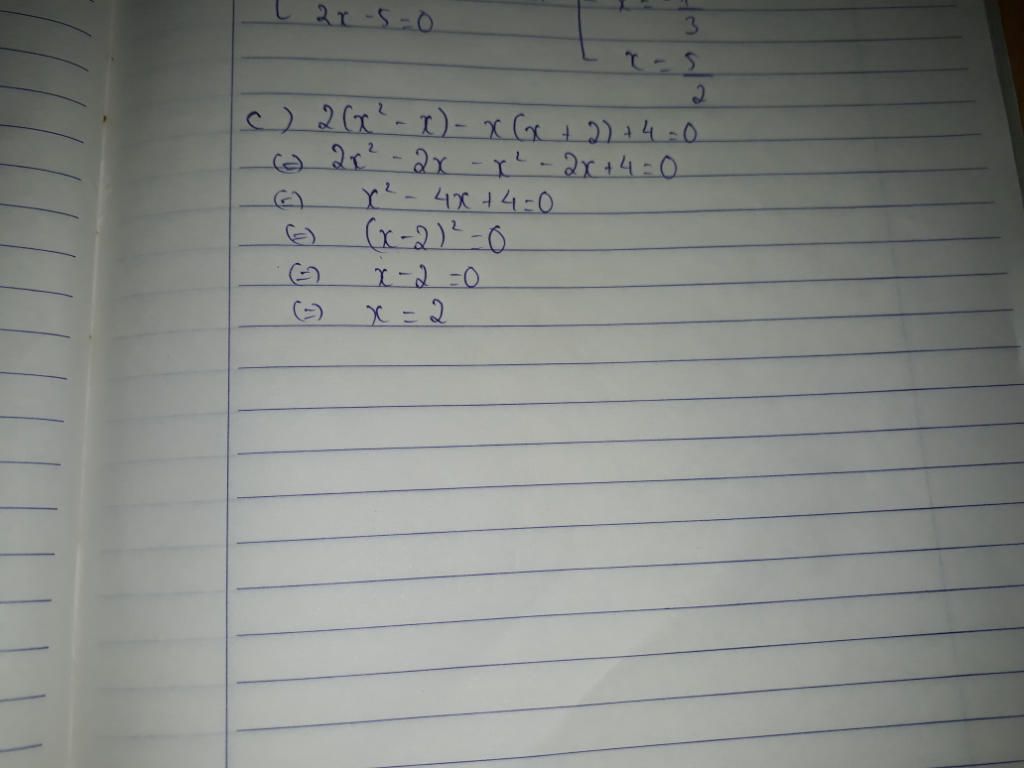 2x - 5 = 0
3
x = 5/2
c) 2(x² - x) - x(x + 2) + 4 = 0
(=) 2x² - 2x - x² - 2x + 4 = 0
(=) x² - 4x + 4 = 0
(=) (x - 2)² = 0
(=) x - 2 = 0
(=) x = 2